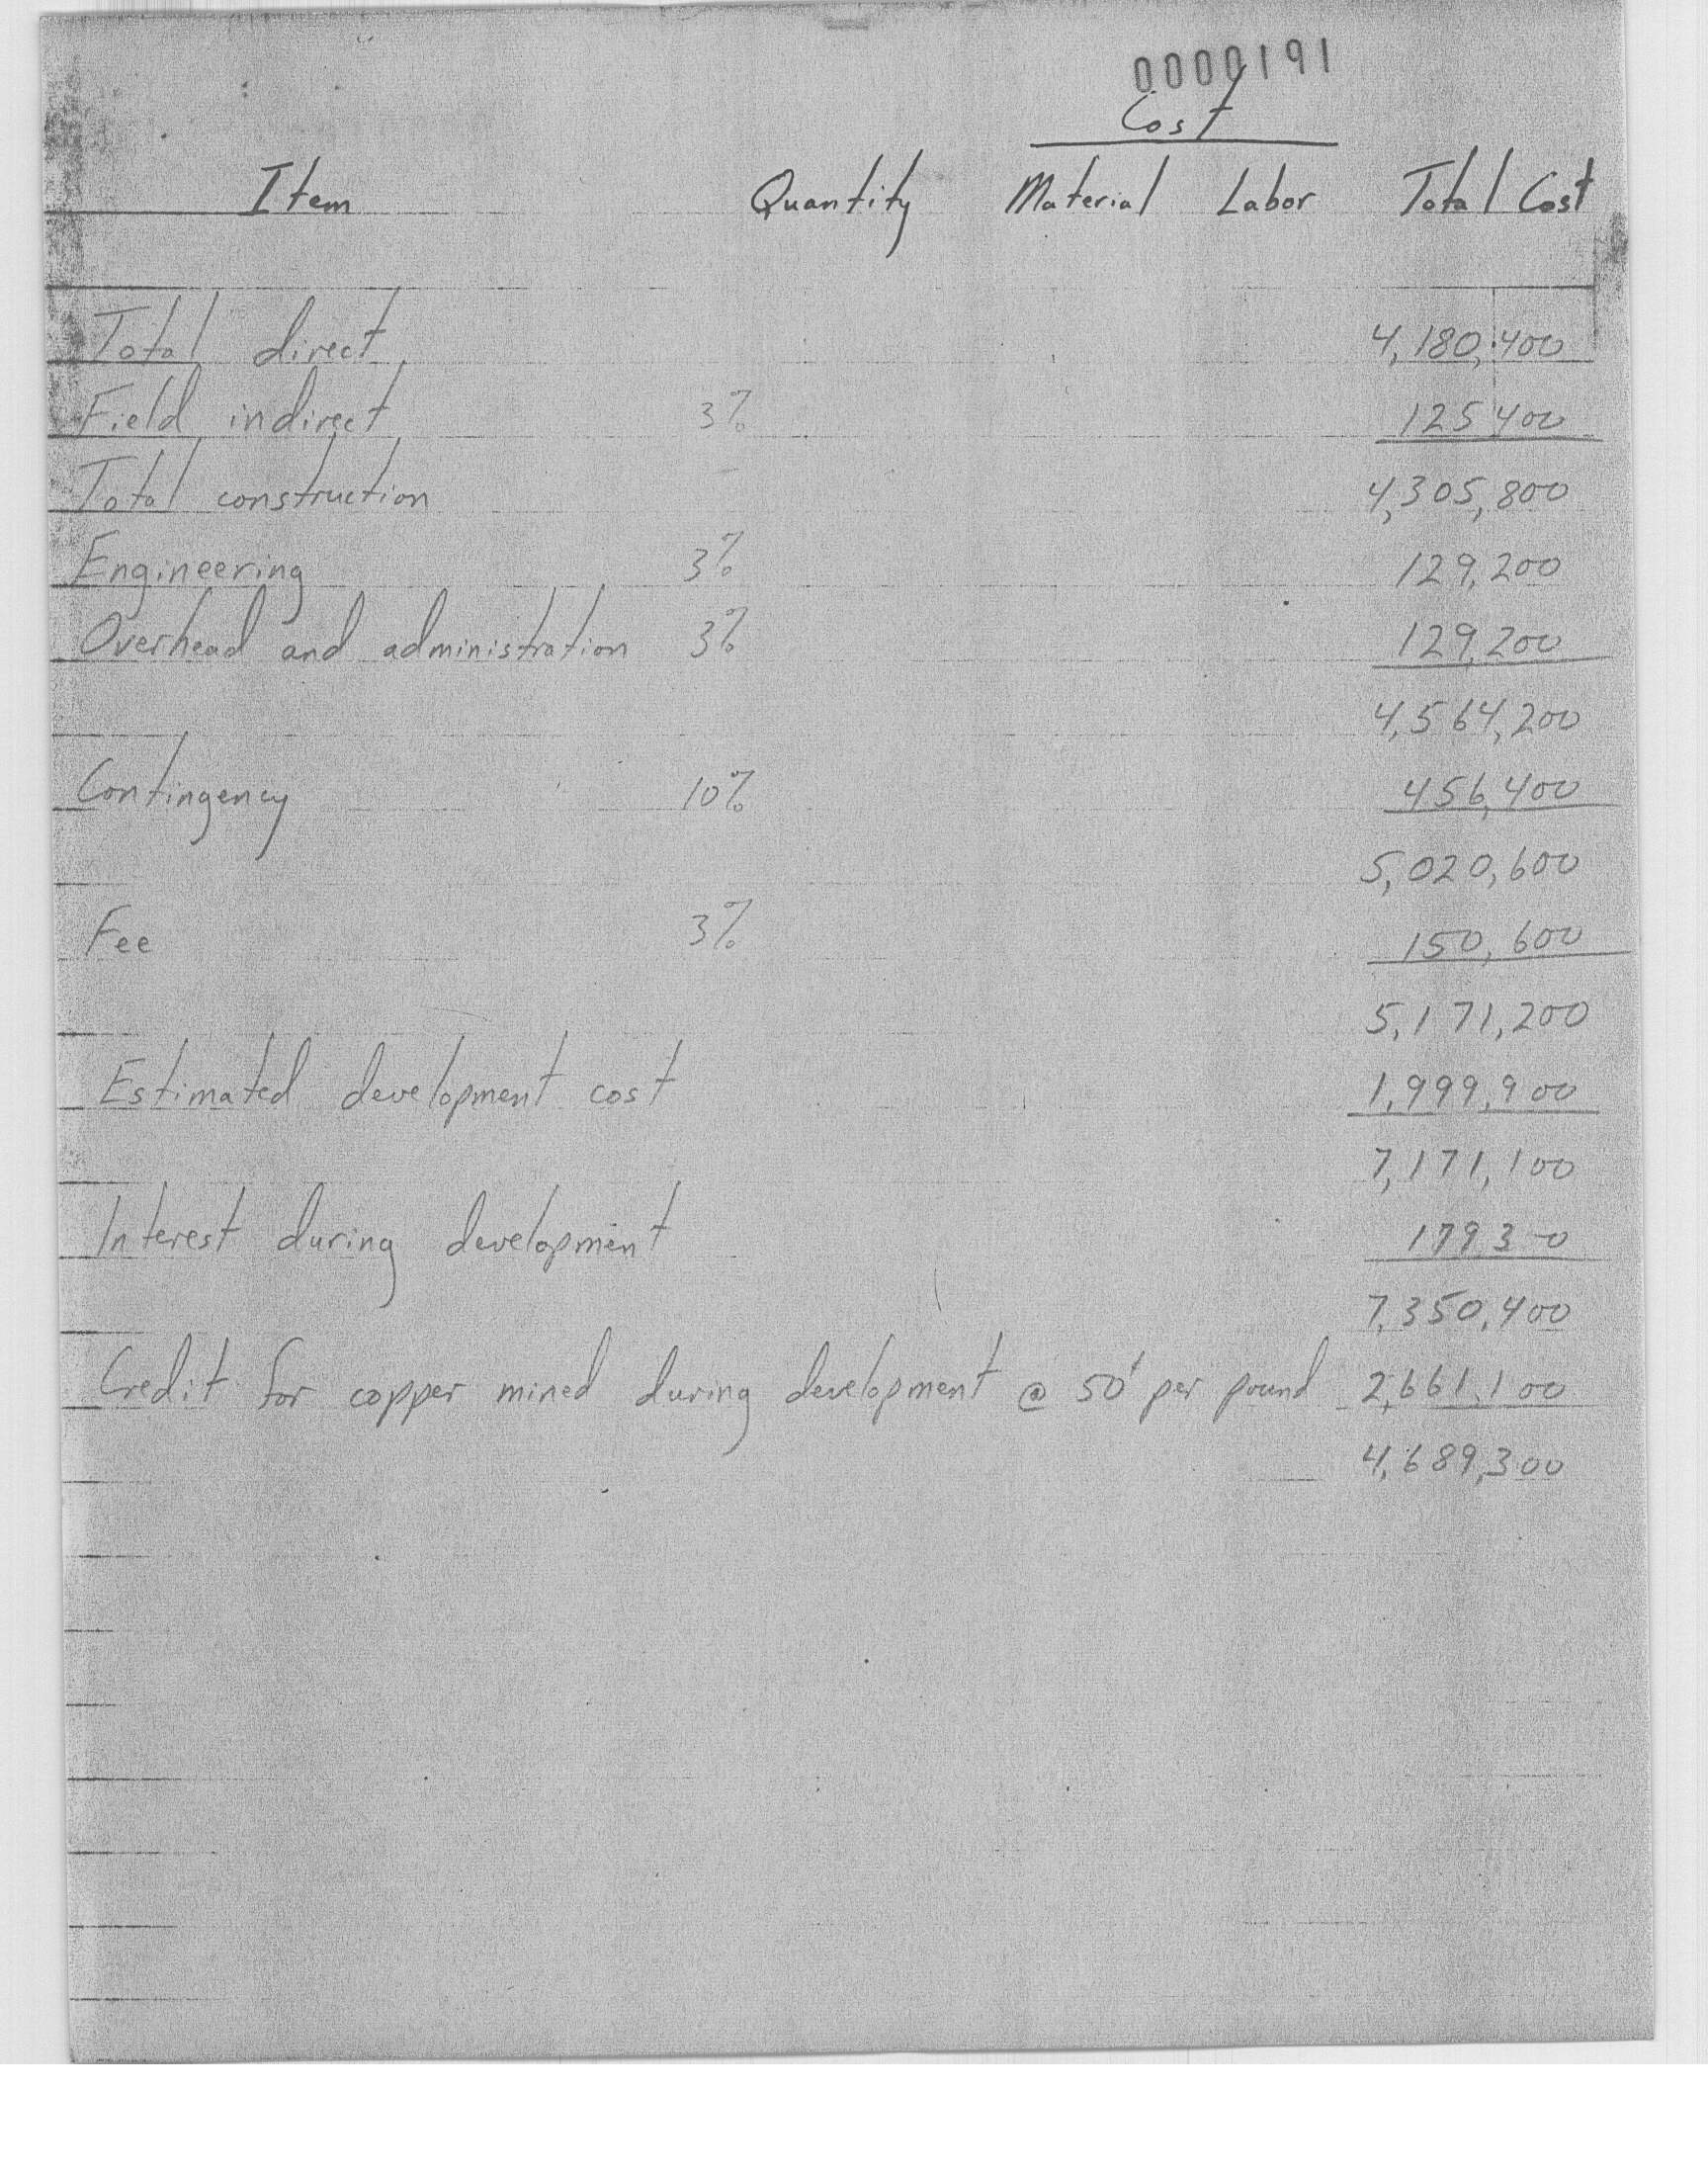 0000191
Cost
Item Quantity Material Labor Total Cost
Total direct 4,180,400
Field indirect 3% 125400
Total construction 4,305,800
Engineering 3% 129,200
Overhead and administration 3% 129,200
4,564,200
Contingency 10% 456,400
5,020,600
Fee 3% 150,600
5,171,200
Estimated development cost 1,999,900
7,171,100
Interest during development 179300
7,350,400
Credit for copper mined during development @ 50¢ per pound 2,661,100
4,689,300